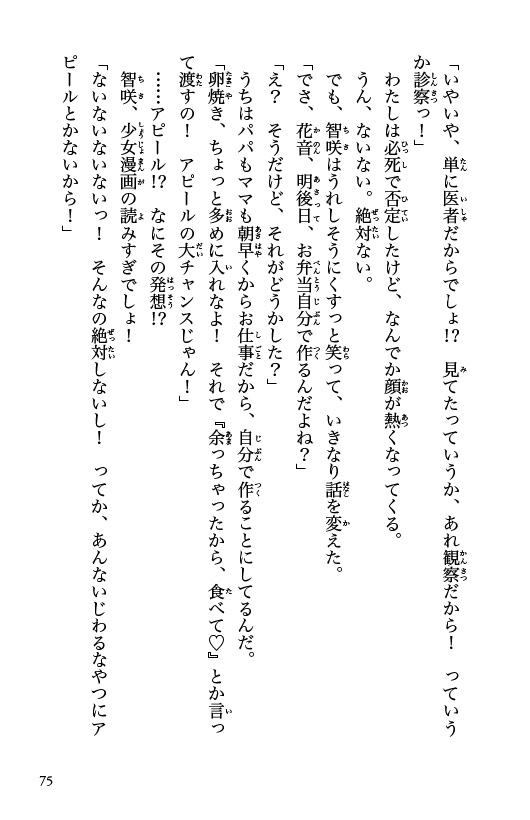 「いやいや、単に医者だからでしょ!? 見てたっていうか、あれ観察だから! っていう
か診察っ!」
わたしは必死で否定したけど、なんでか顔が熱くなってくる。
うん、ないない。絶対ない。
でも、智咲はうれしそうにくすっと笑って、いきなり話を変えた。
「でさ、花音、明後日、お弁当自分で作るんだよね?」
「え? そうだけど、それがどうかした?」
うちはパパもママも朝早くからお仕事だから、自分で作ることにしてるんだ。
「卵焼き、ちょっと多めに入れなよ! それで『余っちゃったから、食べて♡』とか言っ
て渡すの! アピールの大チャンスじゃん!」
……アピール!? なにその発想!?
智咲、少女漫画の読みすぎでしょ!
「ないないないないっ! そんなの絶対しないし! ってか、あんないじわるなやつにア
ピールとかないから!」
75